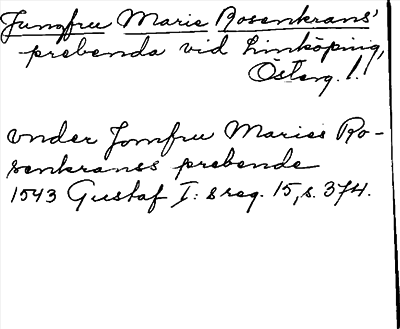 Jungfru Marie Rosenkrans'
prebenda vid Linköping,
Österg. l.
vnder Jomfru Maries Ro-
senkranss prebende
1543 Gustaf I:s reg. 15, s. 374.